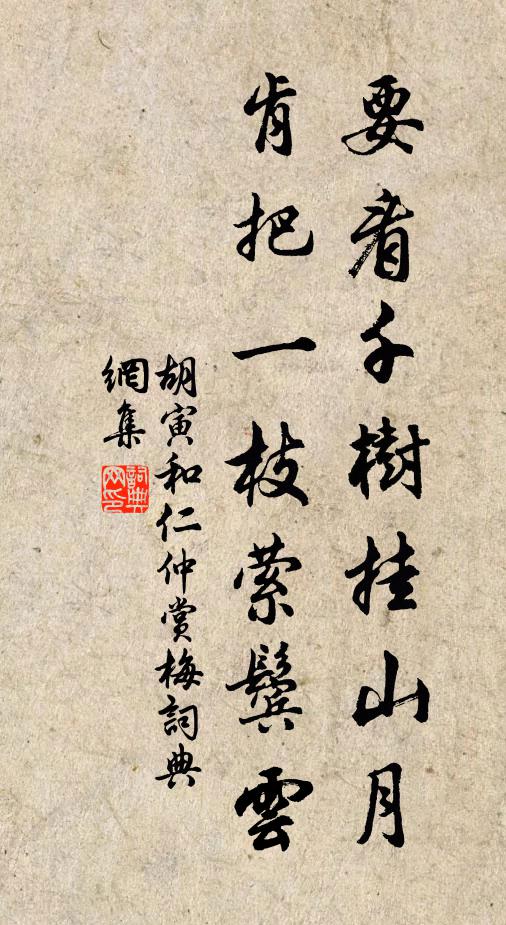 要看千樹挂山月
肯把一枝縈鬓雲
胡寅和仁仲賞梅詞典
網集
詞典網印